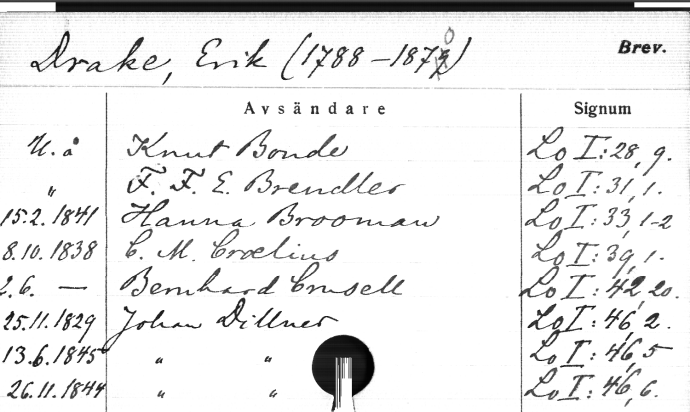 Drake, Erik (1788-1870) Brev.
Avsändare Signum
U. å Knut Bonde Lo I:28, 9.
" F. F. E. Brendler Lo I:31, 1.
15.2.1841 Hanna Brooman Lo I:33, 1-2
8.10.1838 C. M. Crælius Lo I:39, 1.
2.6. — Bernhard Crusell Lo I:42, 20.
25.11.1829 Johan Dillner Lo I:46, 2.
13.6.1845 " " Lo I:46, 5
26.11.1844 " " Lo I:46, 6.